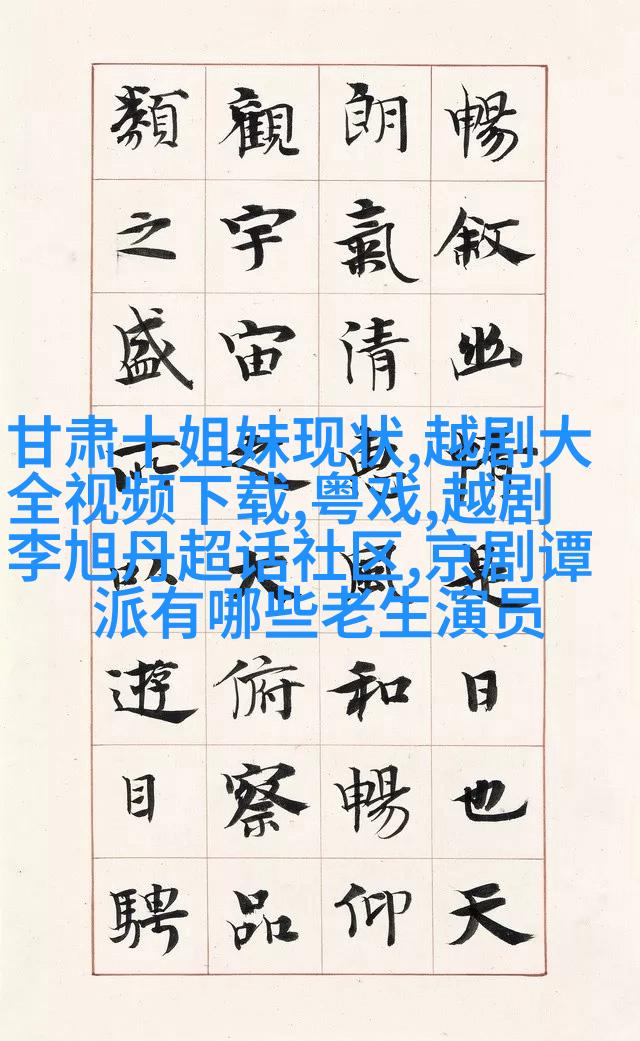 暢敘幽情是日也天
朗氣清惠風和暢仰
觀宇宙之大俯察品
類之盛所以遊目騁
甘肃十姐妹现状,越剧大
全视频下载,粤戏,越剧
李旭丹超话社区,京剧谭
派有哪些老生演员